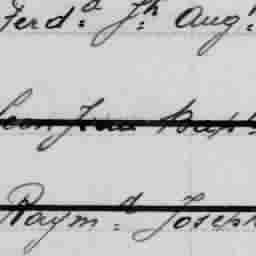 Ferd.d Jh. Aug.
Leon Jean Bapt
Raym.d Joseph